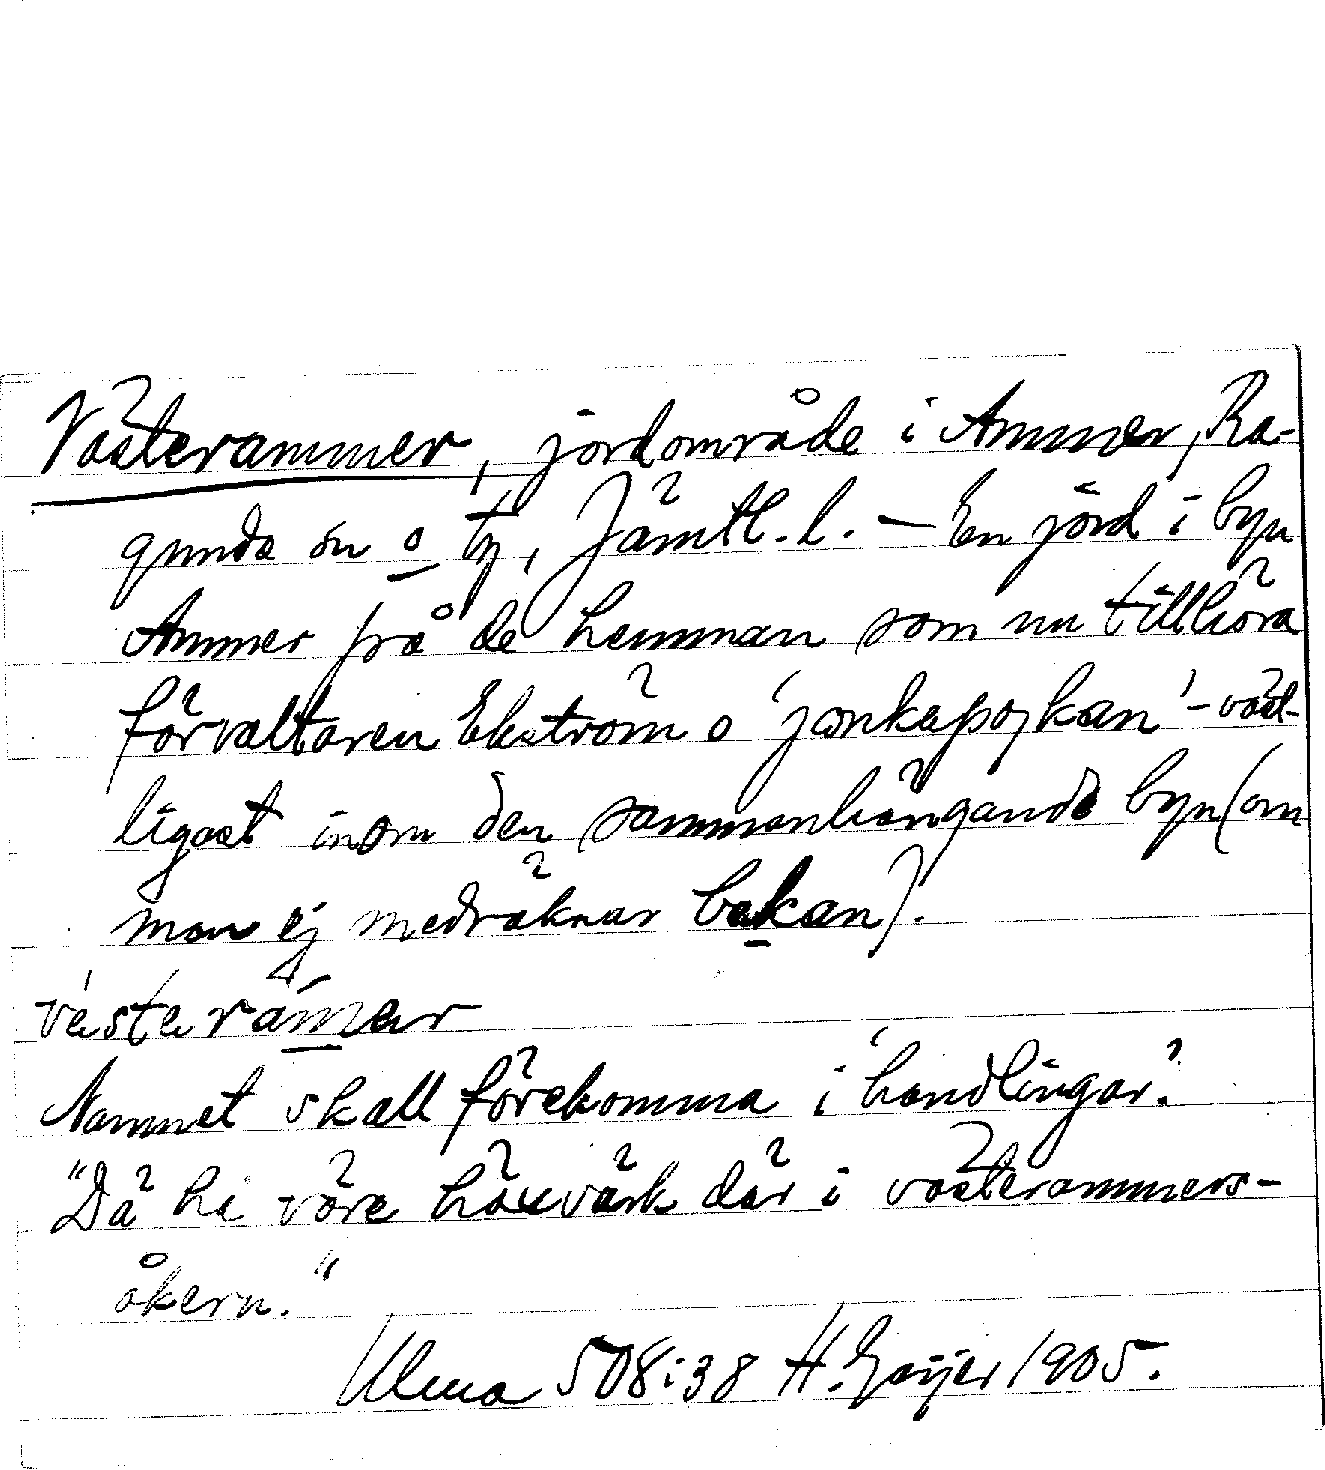 Västerammer, jordområde i Ammer, Ra-
gunda sn o tg, Jämtl. l. — En jord i byn
Ammer på de hemman som nu tillhöra
förvaltaren Ekström o 'jonkapojkan' - väst-
ligast inom den sammanhängande byn (om
man ej medräknar bakan).
västerámer
Namnet skall förekomma i 'handlingar.'
"Dä hi vöre häxvärk där i västerammers-
åkern."
Ulma 508:38 H. Geijer 1905.